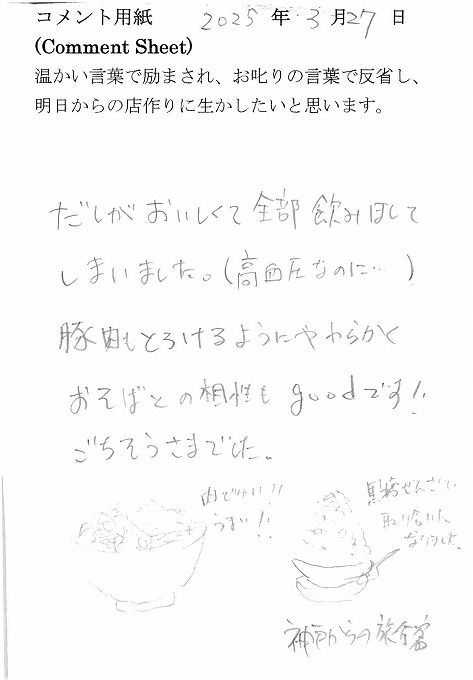 コメント用紙 2025年3月27日
(Comment Sheet)
温かい言葉で励まされ、お叱りの言葉で反省し、
明日からの店作りに生かしたいと思います。
だしがおいしくて全部飲みほして
しまいました。(高血圧なのに…)
豚肉もとろけるようにやわらかく
おそばとの相性もgoodです!!
ごちそうさまでした。
肉でかい!!
うまい!!
黒糖ぜんざい
取り合いに
なりました。
神戸からの旅行客